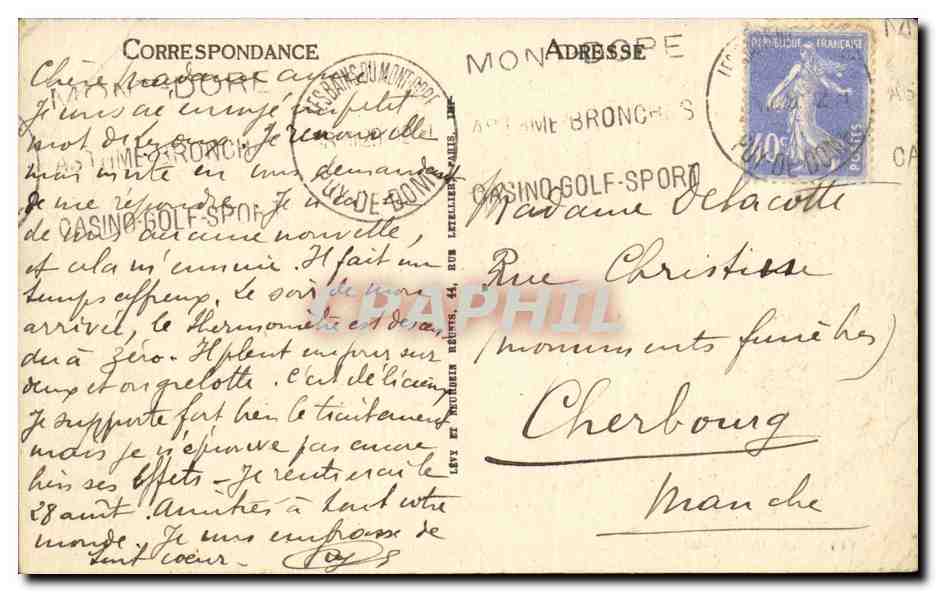 CORRESPONDANCE
Chère madame amie
Je vous ai envoyé un petit
mot de Je renouvelle
ma visite en vous demandant
de me répondre. Je n'ai
de vous aucune nouvelle,
et cela m'ennuie. Il fait un
temps affreux. Le soir de mon
arrivée, le thermomètre est descen
du à zéro. Il pleut un jour sur
deux et on grelotte. C'est délicieux
Je supporte fort bien le traitement
mais je n'éprouve pas encore
bien ses effets - Je rentrerai le
28 août. Amitiés à tout votre
monde. Je vous embrasse de
tout coeur -
MONT-DORE
ASTHME-BRONCH
CASINO-GOLF-SPOR
LES BAINS DU MONT-DORE
PUY-DE-DOME
LÉVY ET NEURDEIN RÉUNIS, 44, RUE LETELLIER, PARIS, IMP.
ADRESSE
MONT-DORE
ASTHME-BRONCHES
CASINO-GOLF-SPORT
PUY-DE-DOME
REPUBLIQUE FRANÇAISE
40c
POSTES
AS
CA
Madame Delacotte
Rue Christine
(monuments funèbres)
Cherbourg
Manche
J-PHIL